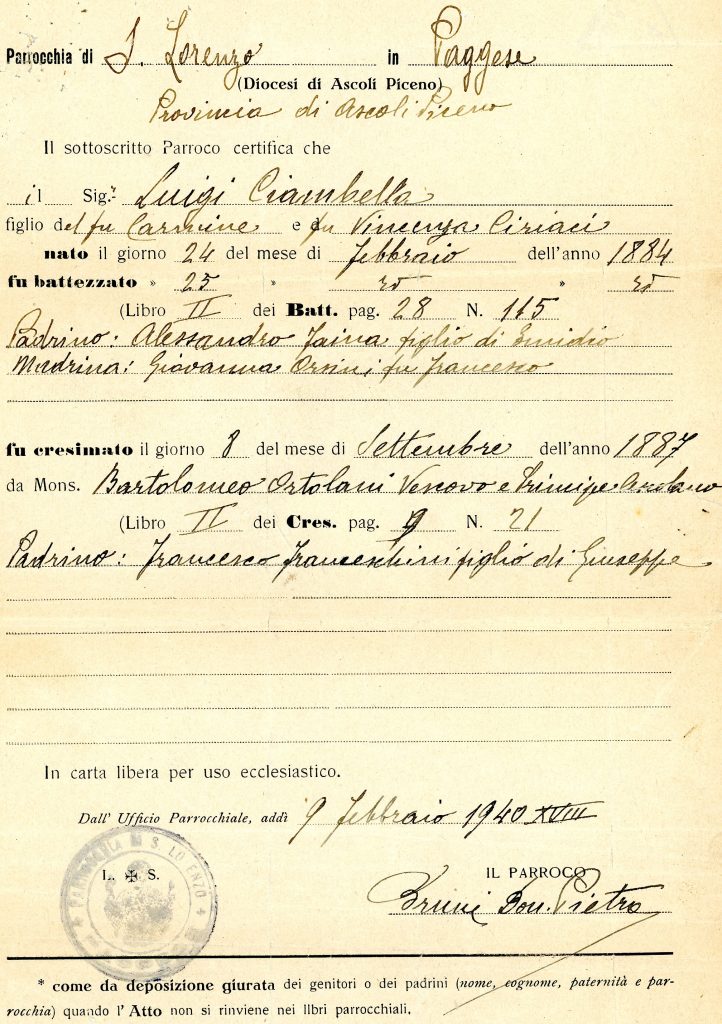 Parrocchia di S. Lorenzo in Paggese
(Diocesi di Ascoli Piceno)
Provincia di Ascoli Piceno
Il sottoscritto Parroco certifica che
il Sig.r Luigi Ciambella
figlio del fu Carmine e fu Vincenza Ciriaci
nato il giorno 24 del mese di febbraio dell'anno 1884
fu battezzato » 25 » »
(Libro II dei Batt. pag. 28 N. 115
Padrino: Alessandro Taina figlio di Emidio
Madrina: Giovanna Orsini fu Francesco
fu cresimato il giorno 8 del mese di Settembre dell'anno 1887
da Mons. Bartolomeo Ortolani Vescovo e Principe Ascolano
(Libro II dei Cres. pag. 9 N. 21
Padrino: Francesco Franceschini figlio di Giuseppe
In carta libera per uso ecclesiastico.
Dall' Ufficio Parrocchiale, addì 9 febbraio 1940 XVIII
PARROCCHIA DI S. LO ENZO
L. ✠ S.
IL PARROCO
Bruni Don. Pietro
* come da deposizione giurata dei genitori o dei padrini (nome, cognome, paternità e par-
rocchia) quando l'Atto non si rinviene nei libri parrocchiali.